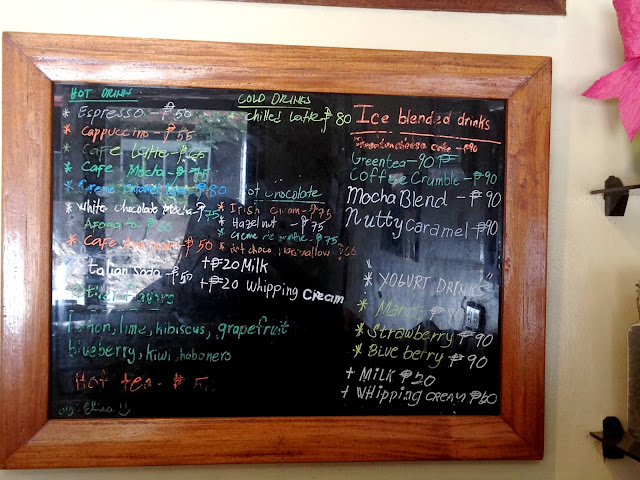 HOT DRINKS
* Espresso - ₱ 50
* Cappuccino - ₱ 55
* Cafe Latte - ₱
* Cafe Mocha - ₱ 75
* Creme Caramel ₱ 80
* white chocolate Mocha - ₱ 75
* Cafe ₱ 50
Italian soda - ₱50
+₱20 Milk
+₱20 Whipping Cream
Other flavors
Lemon, lime, hibiscus, grapefruit
blueberry, kiwi, habonero
Hot tea - ₱
COLD DRINKS
* chilled Latte ₱ 80
Hot Chocolate
* Irish Cream - ₱75
* Hazelnut - ₱75
* Creme de menthe - ₱75
* hot choco marshmallow
Ice blended drinks
cake - ₱90
Greentea - 90 ₱
Coffee Crumble - ₱90
Mocha Blend - ₱ 90
Nutty Caramel - ₱90
"YOGURT DRINKS"
* Mango ₱ 90
* Strawberry ₱ 90
* Blue berry ₱ 90
+ Milk ₱20
+ WHIPPING CREAM